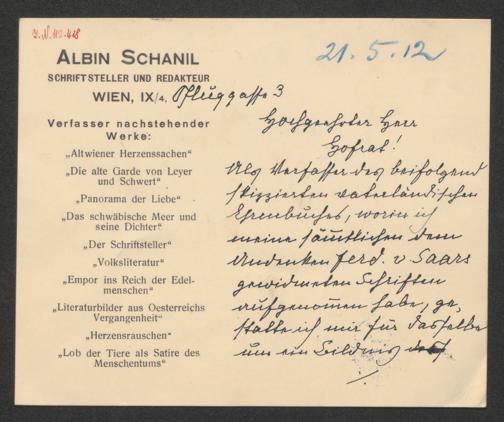 J.N. 112.428
21.5.12
ALBIN SCHANIL
SCHRIFTSTELLER UND REDAKTEUR
WIEN, IX/4. Pfluggasse 3
Verfasser nachstehender
Werke:
„Altwiener Herzenssachen“
„Die alte Garde von Leyer
und Schwert“
„Panorama der Liebe“
„Das schwäbische Meer und
seine Dichter“
„Der Schriftsteller“
„Volksliteratur“
„Empor ins Reich der Edel-
menschen“
„Literaturbilder aus Oesterreichs
Vergangenheit“
„Herzensrauschen“
„Lob der Tiere als Satire des
Menschentums“
Hochgeehrter Herr
Hofrat!
Als Verfasser des beifolgend
skizzierten vaterländischen
Ehrenbuches, worin ich
meine sämtlichen dem
Andenken Ferd. v Saars
gewidmeten Schriften
aufgenommen habe, ge-
statte ich mir für dasselbe
um ein Bildnis